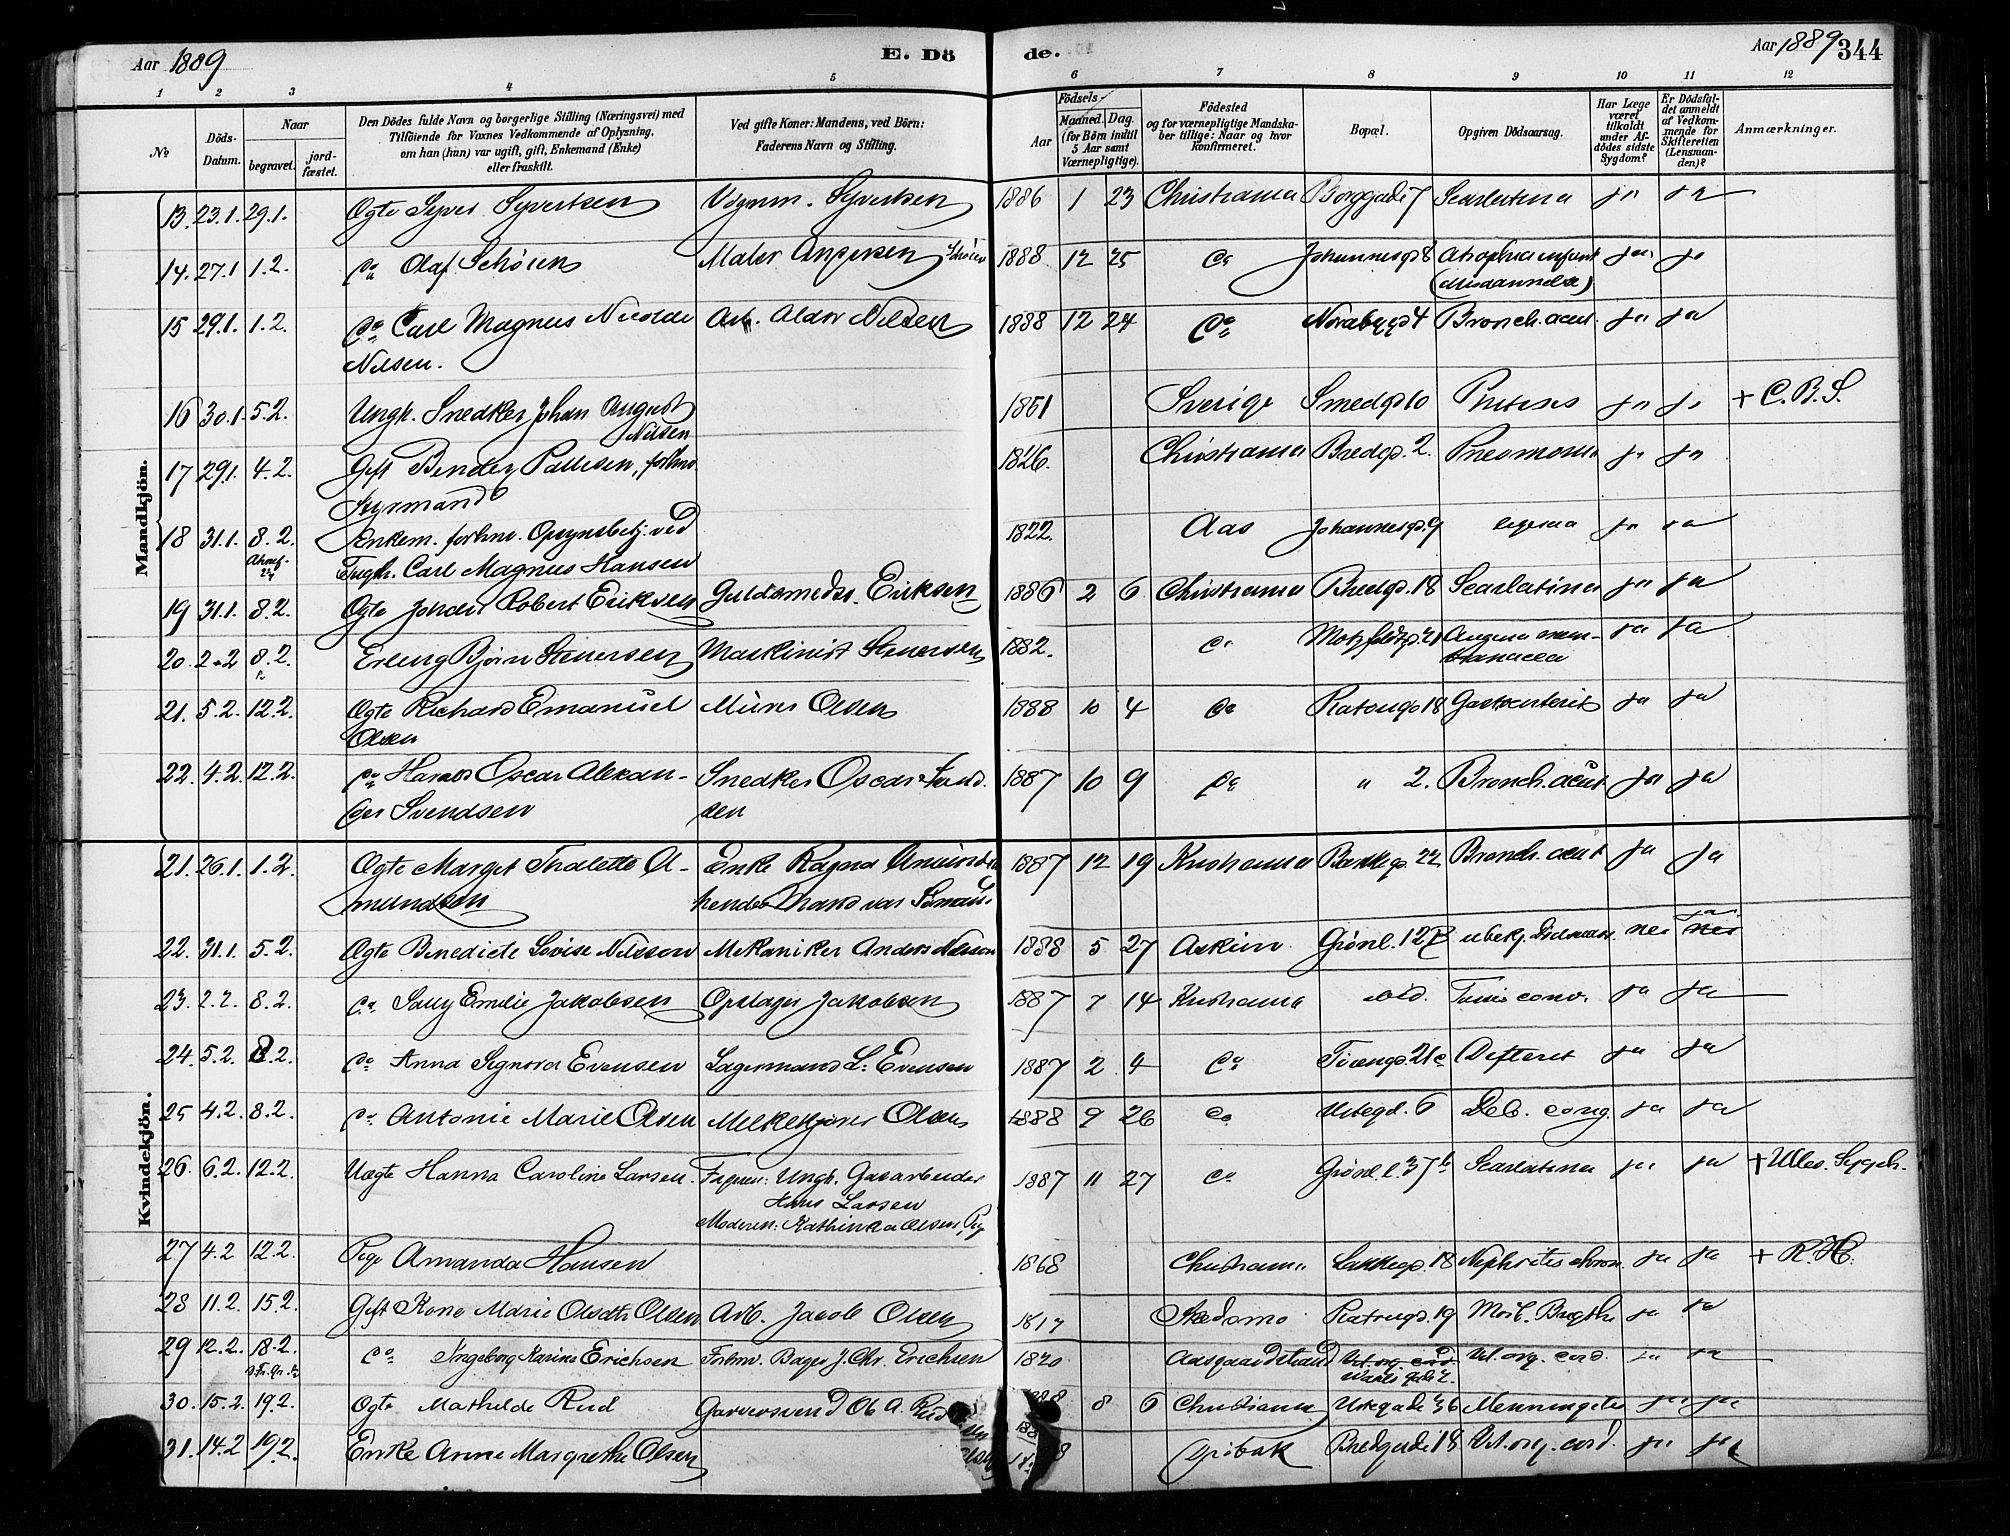 Aar 1889 E. Dö de. Aar 1889 344
1 2 3 4 5 6 7 8 9 10 11 12
No
Döds-Datum.
Naar
begravet.
jord-fæstet.
Den Dödes fulde Navn og borgerlige Stilling (Næringsvei) med
Tilföiende for Voxnes Vedkommende af Oplysning,
om han (hun) var ugift, gift, Enkemand (Enke)
eller fraskilt.
Ved gifte Koner: Mandens, ved Börn:
Faderens Navn og Stilling.
Födsels-
Aar
Maaned. Dag.
(for Börn indtil
5 Aar samt
Værnepligtige).
Födested
og for værnepligtige Mandska-
ber tillige: Naar og hvor
Konfirmeret.
Bopæl.
Opgiven Dödsaarsag.
Har Læge
været
tilkaldt
under Af-
dödes sidste
Sygdom?
Er Dödsfal-
det anmeldt
af Vedkom-
mende for
Skifteretten
(Lensman-
den)?
Anmærkninger.
Mandkjön.
13. 23.1. 29.1. Ægte Syver Syvertsen Syvertsen 1886 1 23 Christiania Borggade 7 Scarlatina ja ja
14. 27.1 1.2. Do Olaf Schöien Maler Andersen Schöien 1888 12 25 Do Johannesgd 8 Atrophia infant ja ja
15 29.1. 1.2. Do Carl Magnus Nicolai Arb. Nilsen 1888 12 24 Do Norbygd 4 Bronch. acut. ja ja
Nilsen.
16 30.1. 5.2. Ungk. Snedker Johan August 1861 Sverige Smedgd 10 Phtisis ja ja + C.B.S.
Nilsen
17 29.1. 4.2. Gift Pallesen, forhv. 1826. Christiania Bredgd. 2. Pneumoni ja ja
Styrmand
18 31.1. 8.2. Enkem. forhv. Opsynsbetj. ved 1822. Aas Johannesgd. 9 ja ja
Tugth. Carl Magnus Hansen
19 31.1. 8.2. Ægte Johan Robert Eriksen Guldsmedsv. Eriksen 1886 2 6 Christiania Bredgd. 18 Scarlatina ja ja
20. 2.2 8.2. Erling Bjørn Stenersen Maskinist Stenersen 1882. Do Motzfeldtsgd. 21 Angina mem- ja ja
branacea
21. 5.2. 12.2. Ægte Richard Emanuel Murer Olsen 1888 10 4 Do Platougd 18 Gastroenterit ja ja
Olsen
22. 4.2. 12.2. Do Harald Oscar Alexan- Snedker Oscar Svend- 1887 10 9 Do " 2. Bronch. acut ja ja
der Svendsen sen
Kvindekjön.
21. 26.1. 1.2. Ægte Marget Thalette A- Enke Ragna Amunds 1887 12 19 Kristiania Bakkegd. 22 Bronch. acut ja ja
mundsen hendes Mand var Sömand
22. 31.1. 5.2. Ægte Benedicte Lovise Nilssen Mekaniker Anders Nilssen 1888 5 27 Askim Grönl. 12 B ubekj. Dödsaars. nei nei
23. 2.2. 8.2. Do Sally Emilie Jakobsen Opslager Jakobsen 1887 7 14 Kristiania ibid. Tussis conv. ja ja
24. 5.2. 8.2. Do Anna Signora Evensen Lagermand L. Evensen 1887 2 4 Do Töiengd. 21c Difterit ja ja
25 4.2. 8.2. Do Antonie Marie Olsen Melkekjører Olsen 1888 9 26 Do Urtegd. 6 Deb. cong. ja ja
26. 6.2. 12.2. Uægte Hanna Caroline Larsen Faderen: Ungk. Gasarbeider 1887 11 27 Do Grönl. l. 37 b Scarlatina ja ja + Ullev. Sygeh.
Hans Larsen
Moderen: Kathinka Olsen, Pig
27 4.2 12.2. Pige Amanda Hansen 1868 Christiania Lakkegd. 18 Nephritis chron. ja ja + R.H.
28 11.2. 15.2. Gift Kone Marie Olsdtr Olsen Arb. Jacob Olsen 1817 Skedsmo Platougd. 19 Morb. Brigthi ja ja
29 12.2. 18.2. Do Ingeborg Karine Erichsen Forhv. Bager J. Chr. Erichsen 1820 Aasgaardstrand Vit. org. cord. Vit. org. cord. ja ja
30. 15.2. 19.2. Ægte Mathilde Rud Garversvend Ob A. Rud 8 6 Christiania Urtegade 36 Menningitis ja ja
31. 14.2 19.2. Enke Anne Margrethe Olsen Dröbak Bredgade 18 Vit. org. cord. ja ja